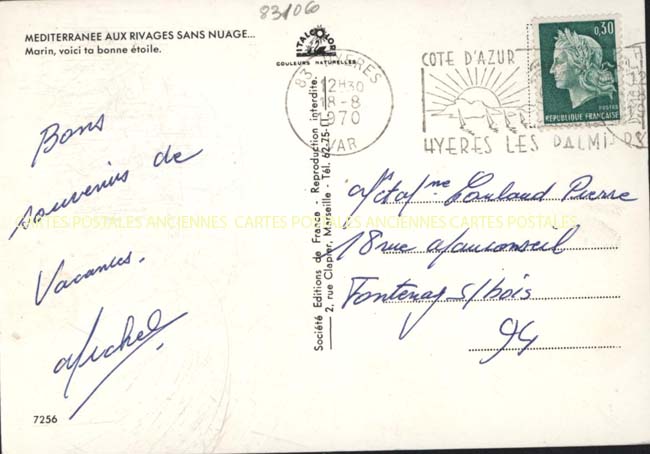 83/06
MEDITERRANEE AUX RIVAGES SANS NUAGE...
Marin, voici ta bonne étoile.
ITALCOLOR
COULEURS NATURELLES
83 HYERES
12H30
18-8
1970
VAR
COTE D'AZUR
HYERES LES PALMIERS
0,30
POSTES
REPUBLIQUE FRANÇAISE
Bons
souvenirs de
Vacances.
Michel
Société Editions de France - Reproduction interdite.
2, rue Clapier, Marseille - Tél. 62-75-
Pierre
18 rue Mauconseil
Fontenay s/bois
94
CARTES POSTALES ANCIENNES CARTES POSTALES ANCIENNES CARTES POSTALES
7256